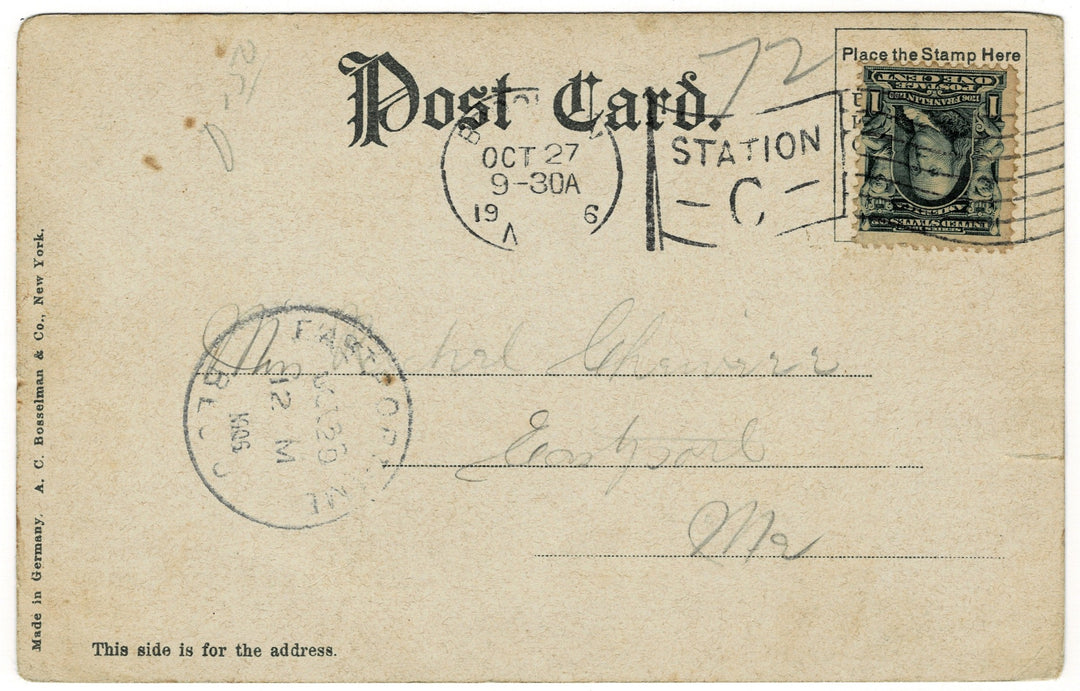 Place the Stamp Here
Post Card.
72
OCT 27
9-30A
19 6
STATION
C
1 1
POSTAGE
ONE CENT
FRANKLIN
SERIES 1902
UNITED STATES OF
AMERICA
EASTPORT
12 M
1906
REC'D
Eastport
Me
Made in Germany. A. C. Bosselman & Co., New York.
This side is for the address.